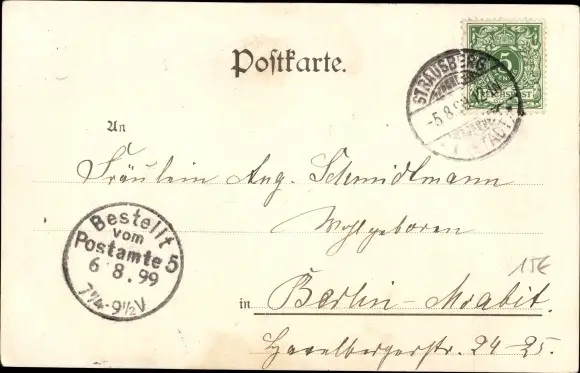 Postkarte.
STRAUSBERG
-5.8.
STADT
5
REICHSPOST
An
Fräulein Aug. Schmidtmann
Wohlgeboren
Bestellt
vom
Postamte 5
6.8.99
7¼-9½V
15€
in Berlin-Moabit.
Havelbergerstr. 24-25.